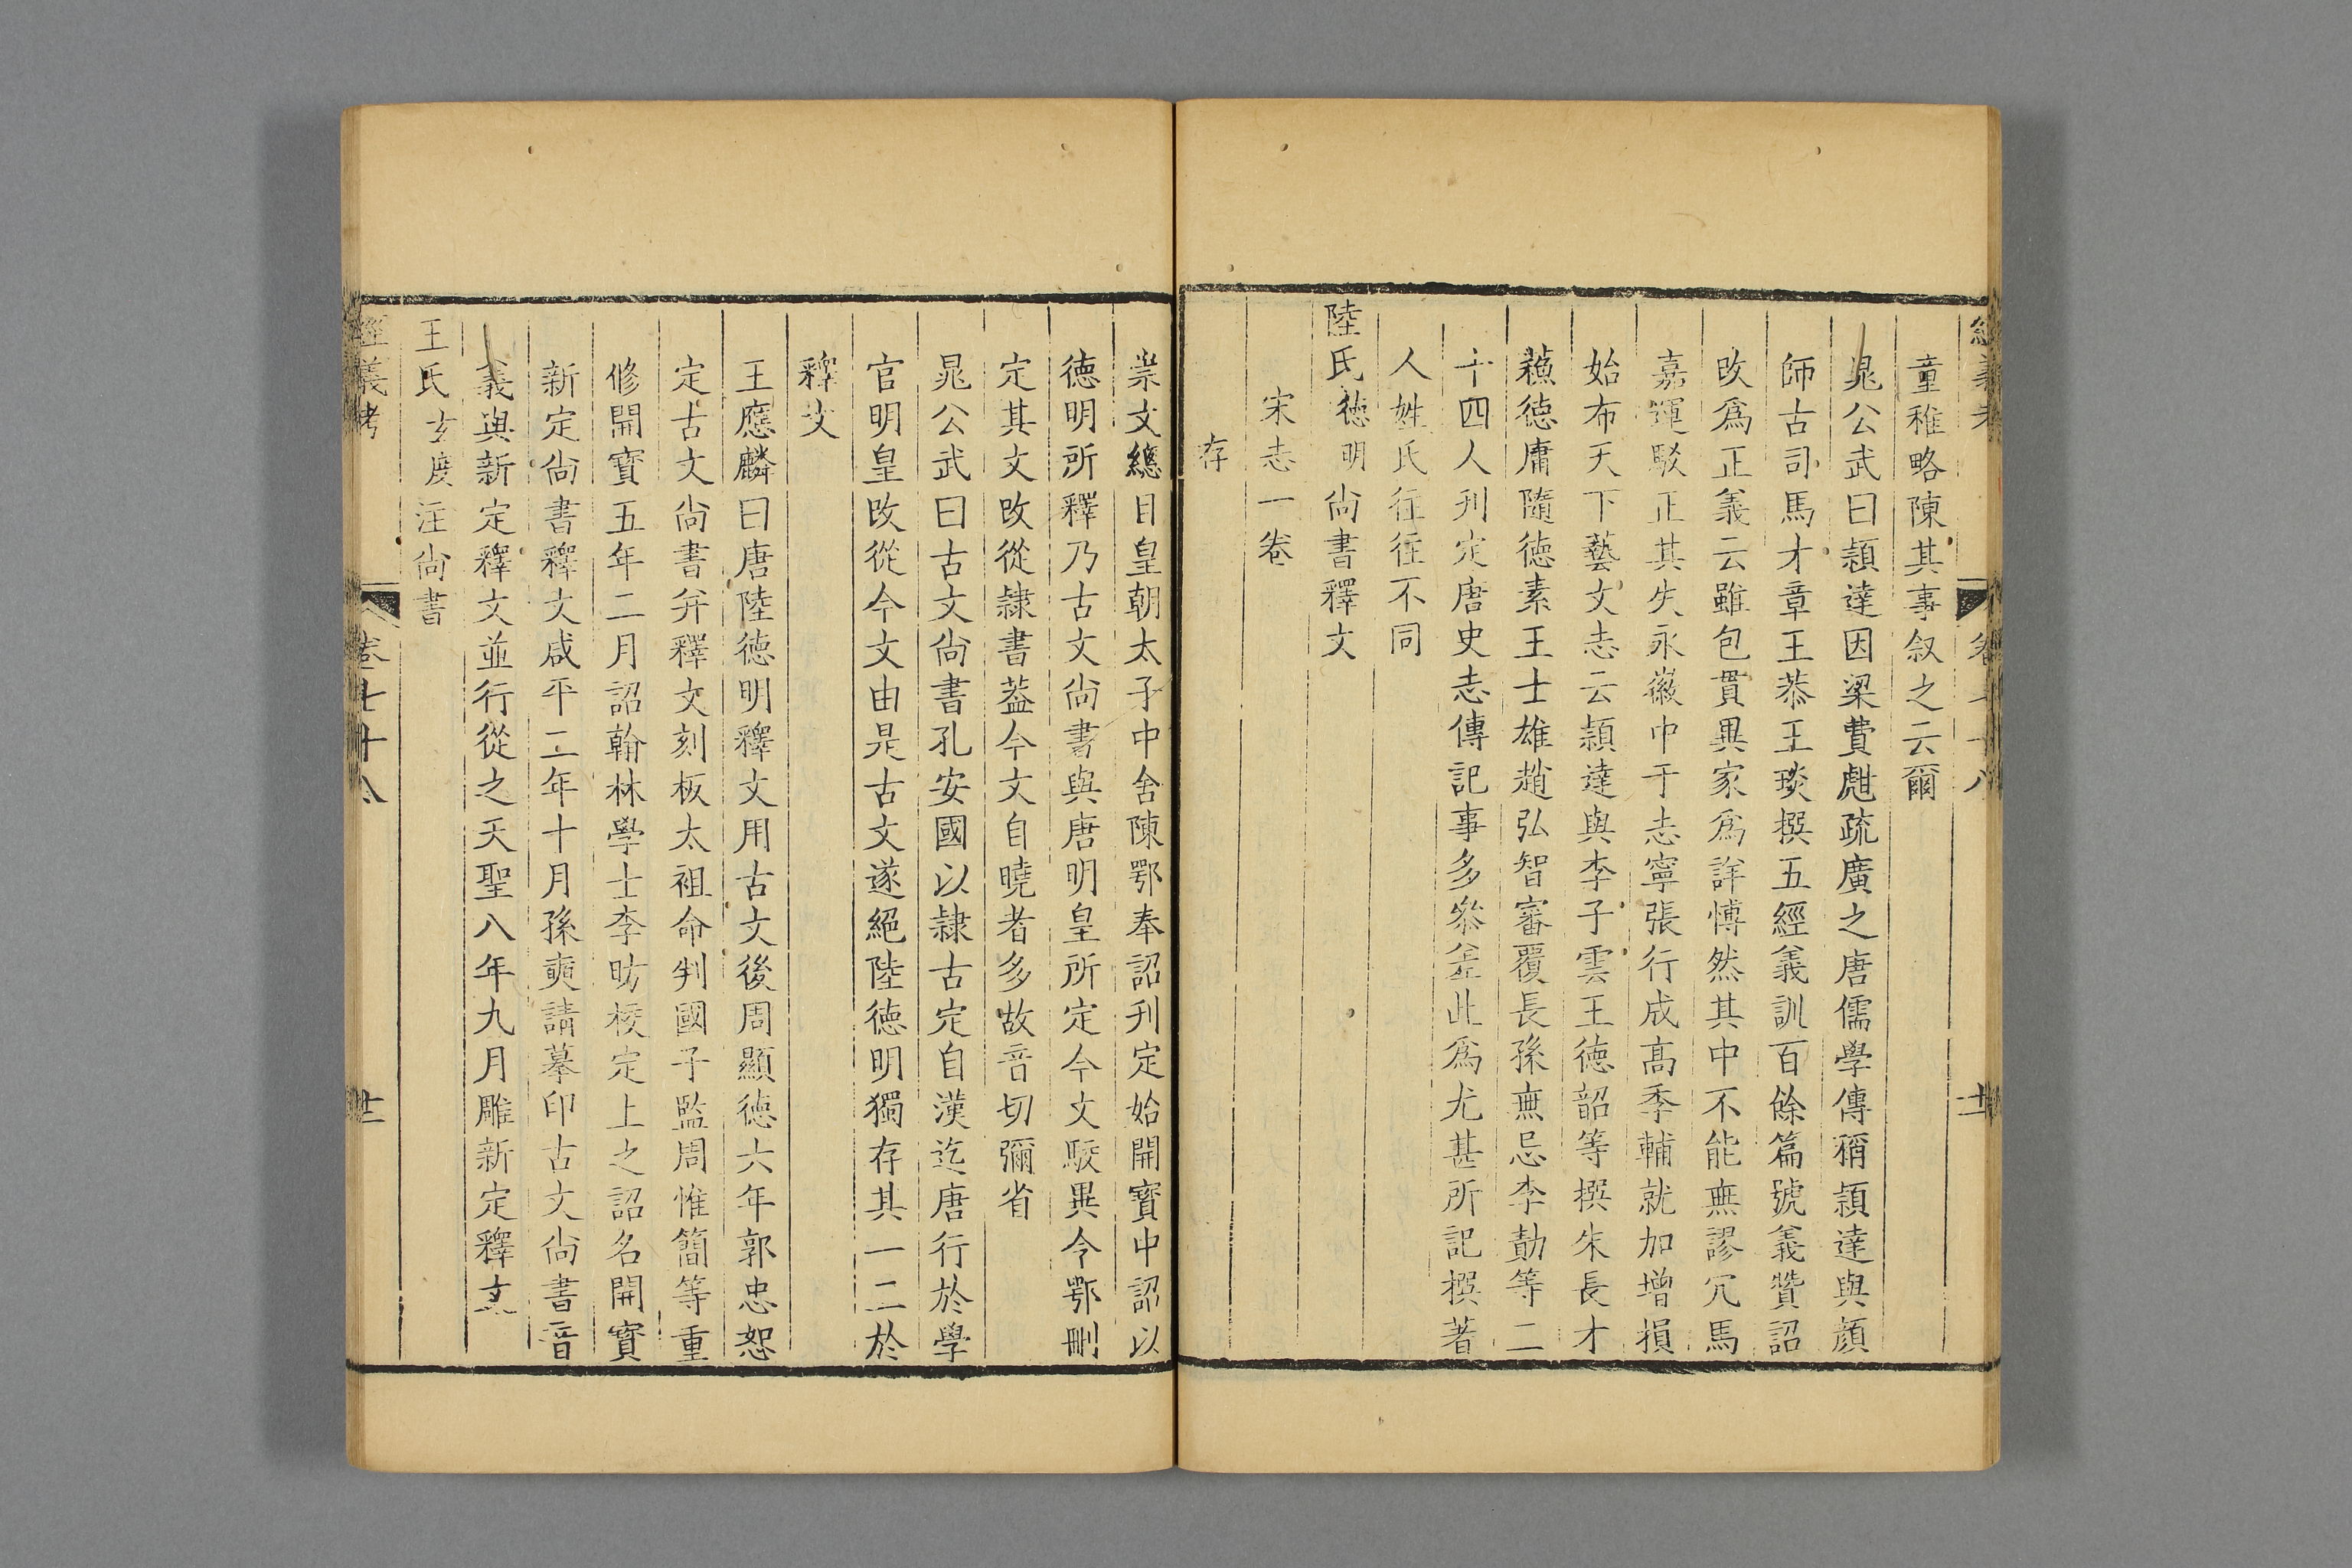 童稚略陳其事叙之云爾
晁公武曰頴達因梁費甝疏廣之唐儒學傳稱頴達與顔
師古司馬才章王恭王琰撰五經義訓百餘篇號義贊詔
改爲正義云雖包貫異家爲詳慱然其中不能無謬冗馬
嘉運駁正其失永徽中于志寧張行成髙季輔就加增損
始布天下藝文志云頴達與李子雲王徳韶等撰朱長才
蘓徳庸隨徳素王士雄趙弘智審覆長孫無忌李勣等二
十四人刋定唐史志傳記事多叅差此爲尤甚所記撰著
人姓氏往往不同
陸氏徳明尚書釋文
宋志一卷
存
崇文總目皇朝太子中舍陳鄂奉詔刋定始開寳中詔以
徳明所釋乃古文尚書與唐明皇所定今文駮異令鄂刪
定其文改從隷書葢今文自曉者多故音切彌省
晁公武曰古文尚書孔安國以隷古定自漢迄唐行於學
官明皇改從今文由是古文遂絕陸徳明獨存其一二於
釋文
王應麟曰唐陸徳明釋文用古文後周顯徳六年郭忠恕
定古文尚書并釋文刻板太祖命判國子監周惟簡等重
修開寳五年二月詔翰林學士李昉校定上之詔名開寳
新定尚書釋文咸平二年十月孫奭請摹印古文尚書音
義與新定釋文並行從之天聖八年九月雕新定釋文
王氏玄度注尚書
經義考 卷七十八